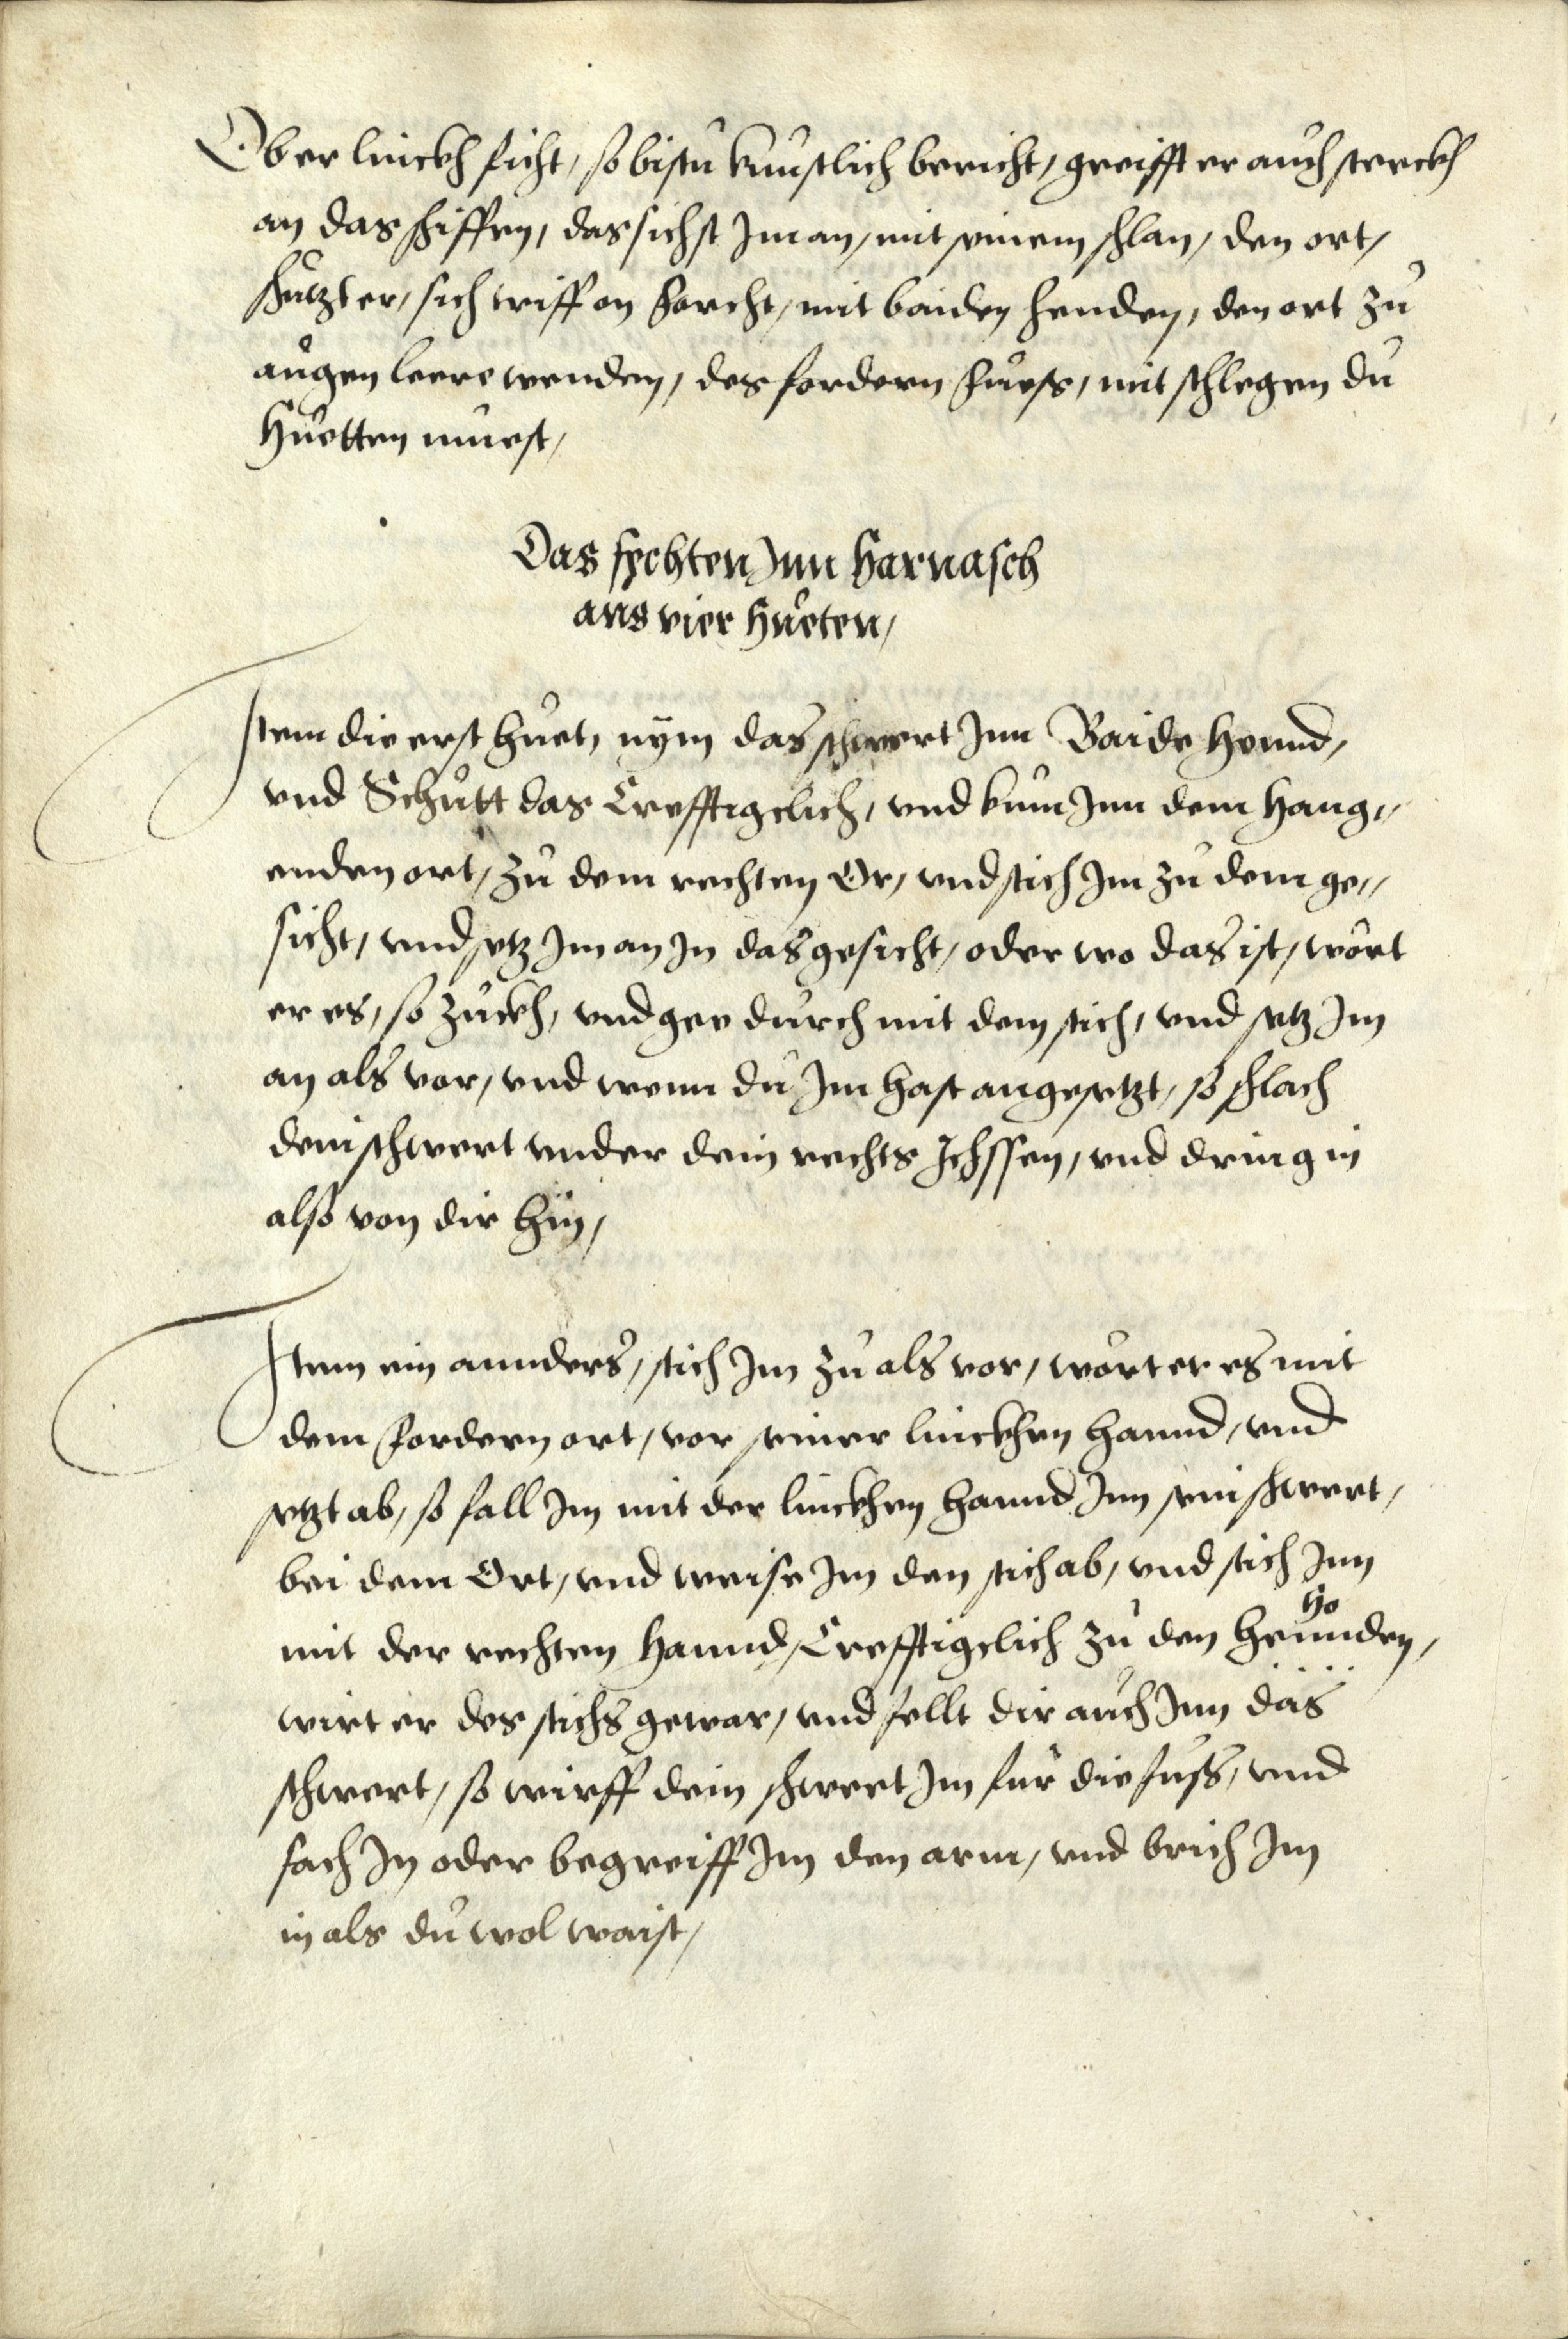 Ob er linckh sicht, so bistu kunstlich bericht, greifft er auch sterckh
an das schiessen, das sichst Im an, mit seinem schlan, den ort,
schutzt er, sich triff on forcht, mit baiden henden, den ort zu
augen leere wenden, des fordern fuess, mit schlegen du
huetten muest,
Das fechten Inn harnasch
aus vier hueten,
Item die erst huet, nÿm das schwert Inn Baide hennd,
vnd Schutt das Crefftigclich, vnd kum Inn dem hang„
enden ort, zu dem rechten Or, vnd stich Im zu dem ge„
sicht, vnd setz Im an In das gesicht, oder wo das ist, wört
er es, so zuckh, vnd gee durch mit dem stich, vnd setz Im
an als vor, vnd wenn du Im hast angesetzt, so schlach
dein schwert vnder dein rechts Ichssen, vnd dring in
also von dir hin,
Item ein annders, stich Im zu als vor, wört er es mit
dem fordern ort, vor seiner linckhen hannd, vnd
setzt ab, so fall Im mit der linckhen hannd Inn sein schwert,
bei dem Ort, vnd weise Im den stich ab, vnd stich Inn
mit der rechten hannd, Crefftigclich zu den ho heunden,
wirt er des stichs gewar, vnd fellt dir auch Inn das
schwert, so wirff dein schwert Im für die fuss, vnd
fach In oder begreiff Im den arm, vnd brich Im
in als du wol waist,